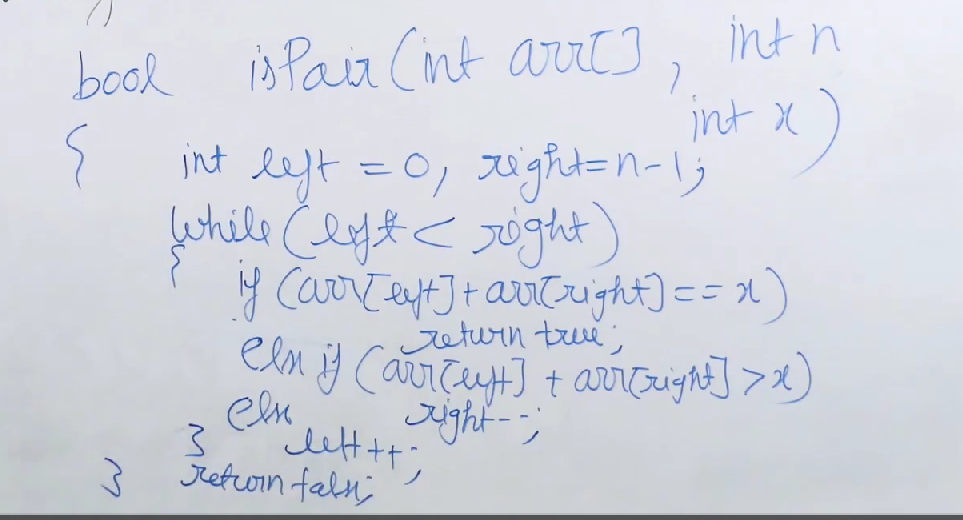 bool isPair(int arr[], int n
int x)
{
int left = 0, right=n-1;
while(left < right)
{
if (arr[left]+arr[right]==x)
return true;
else if (arr[left] + arr[right]>x)
right--;
else
left++;
}
return false;
}